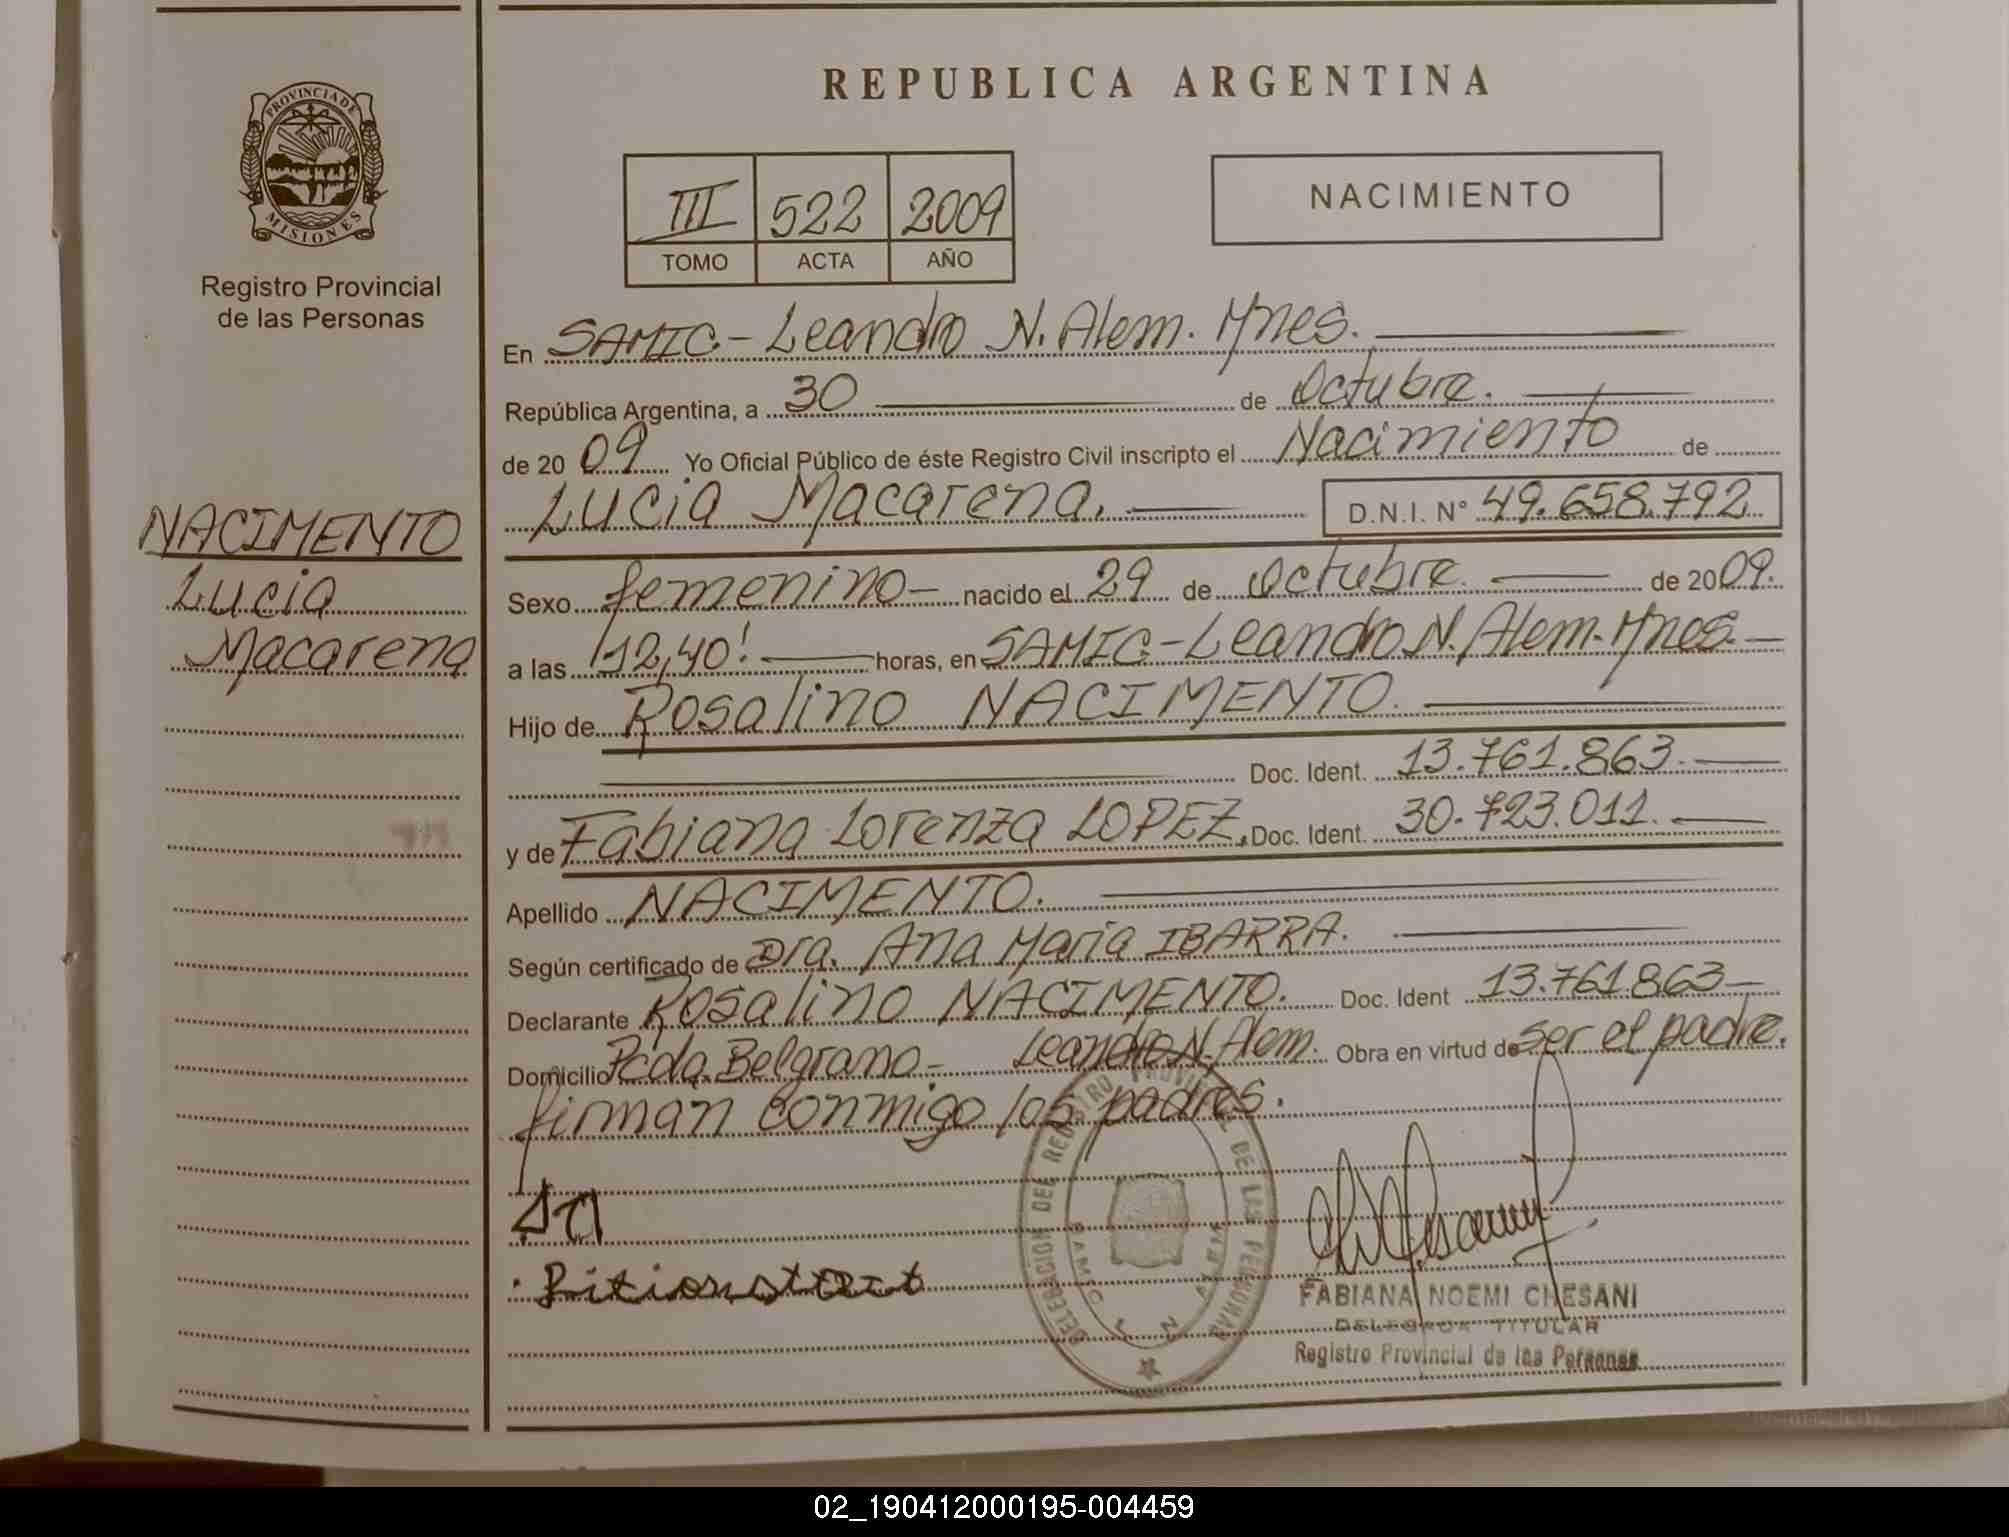 REPUBLICA ARGENTINA
PROVINCIA DE
MISIONES
Registro Provincial
de las Personas
III 522 2009
TOMO ACTA AÑO
NACIMIENTO
En SAMIC.- Leandro N. Alem. Mnes.
República Argentina, a 30 de Octubre.
de 20 09 Yo Oficial Público de éste Registro Civil inscripto el Nacimiento de
Lucia Macarena. D.N.I. N° 49.658.792
NACIMENTO
Lucia
Macarena
Sexo femenino- nacido el 29 de Octubre. de 2009.
a las 12,40! horas, en SAMIC-Leandro N. Alem-Mnes.-
Hijo de Rosalino NACIMENTO.
Doc. Ident. 13.761.863.
y de Fabiana Lorenza LOPEZ. Doc. Ident. 30.723.011.
Apellido NACIMENTO.
Según certificado de Dra. Ana Maria IBARRA.
Declarante Rosalino NACIMENTO. Doc. Ident 13.761.863-
Domicilio Pcda. Belgrano- Leandro N. Alem. Obra en virtud de ser el padre.
firman conmigo los padres.
DELEGACION DEL REGISTRO PROVINCIAL DE LAS PERSONAS
SAMIC L N ALEM
FABIANA NOEMI CHESANI
DELEGADA TITULAR
Registro Provincial de las Personas
02_190412000195-004459